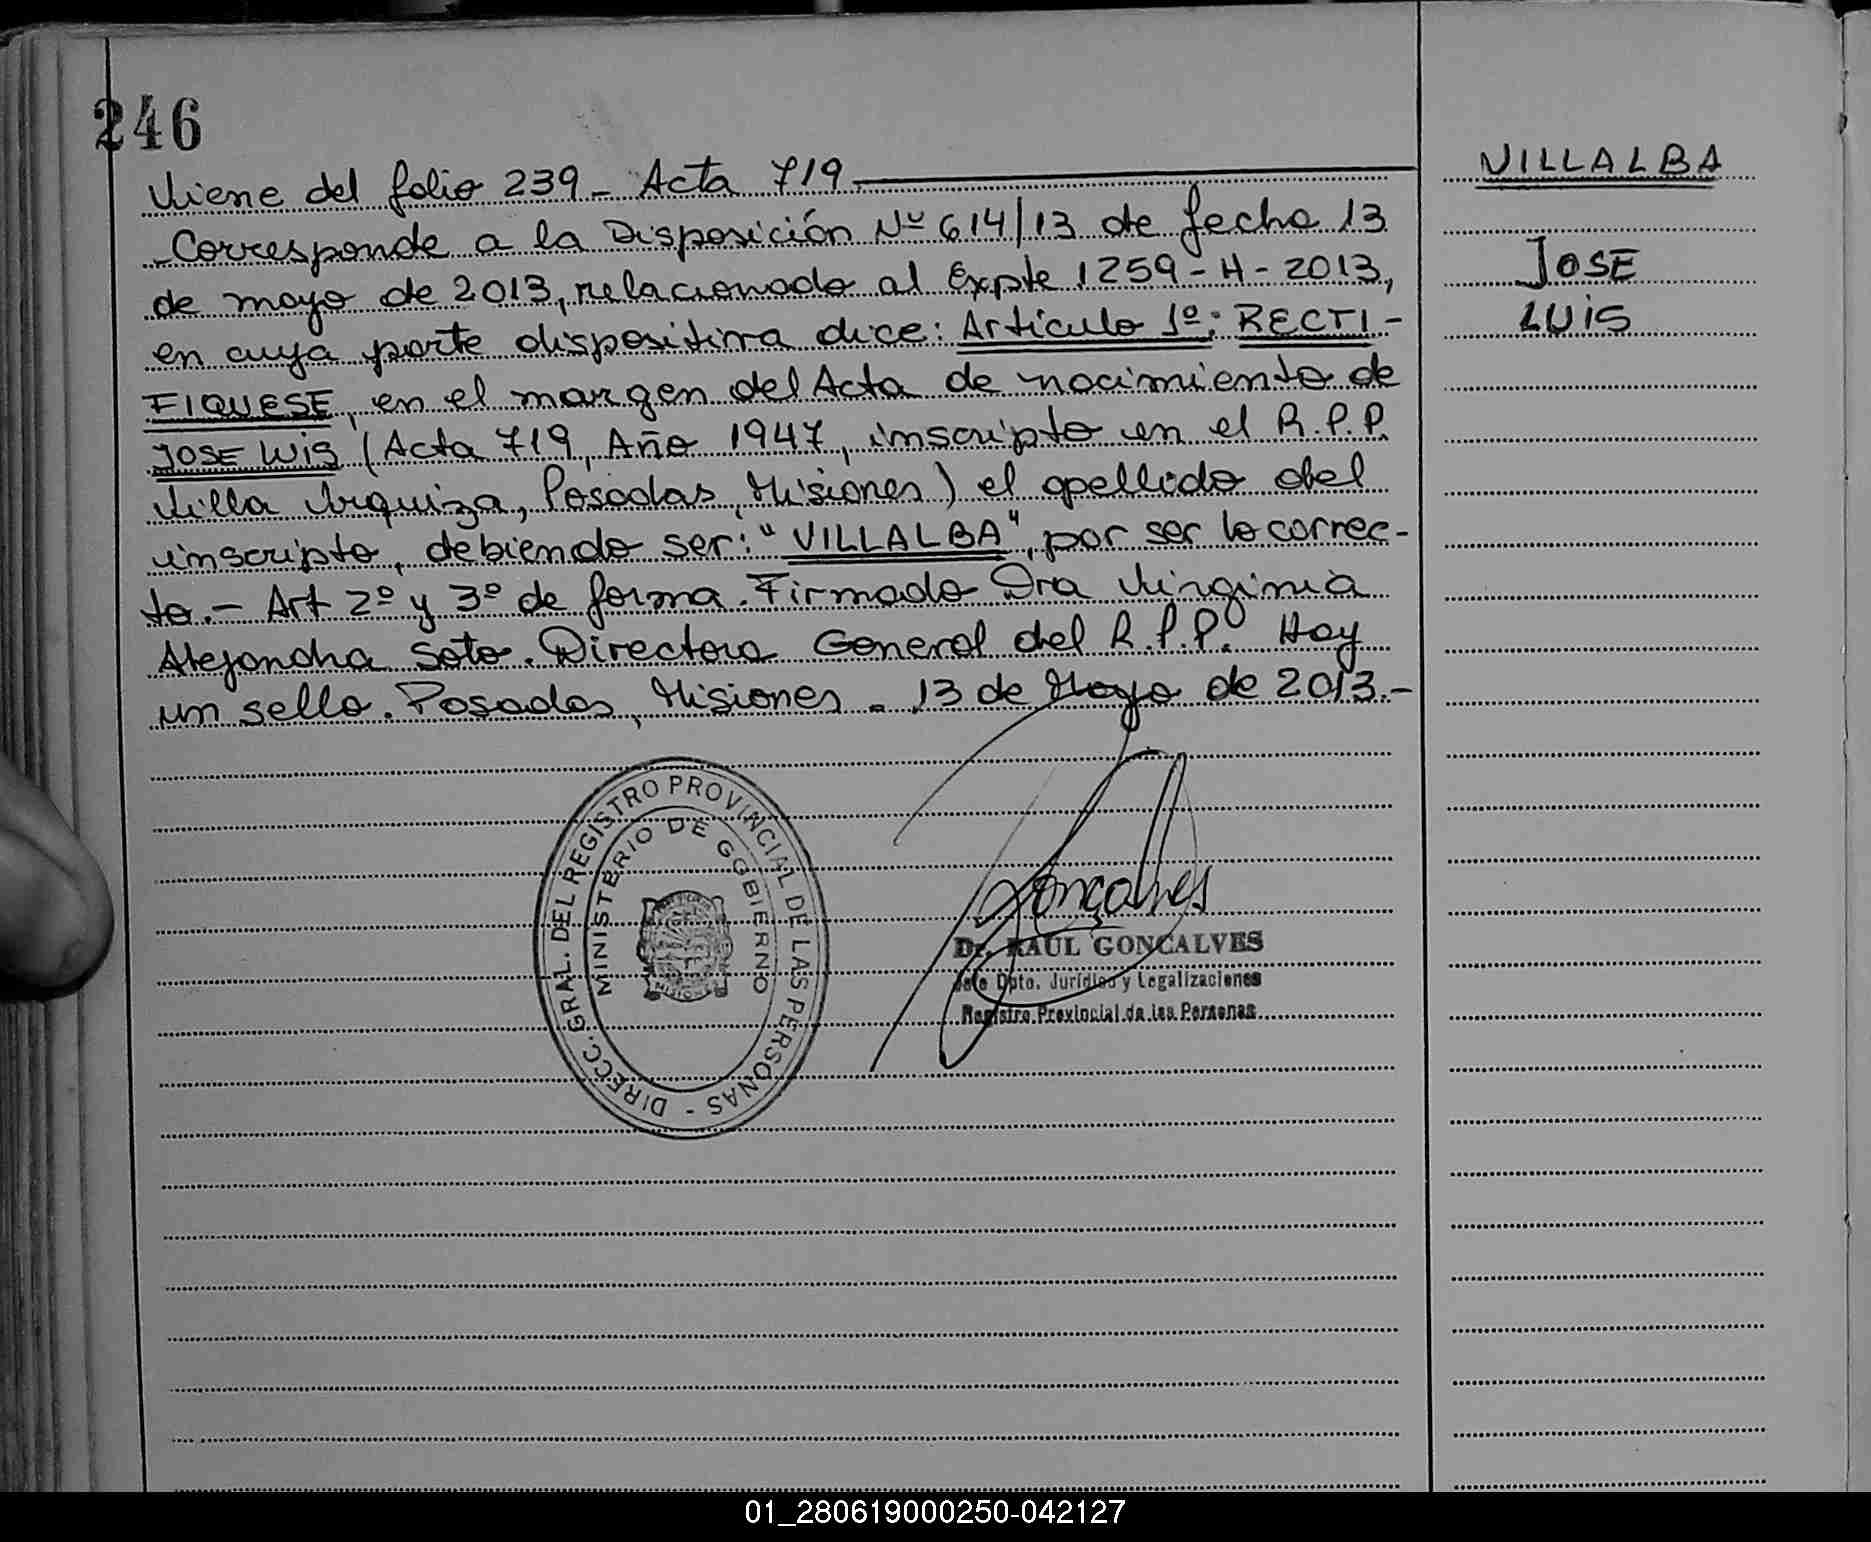 246
Viene del folio 239 - Acta 719
VILLALBA
- Corresponde a la Disposición Nº 614/13 de fecha 13
JOSE
de mayo de 2013, relacionado al Expte 1259 - H - 2013,
LUIS
en cuya parte dispositiva dice: Artículo 1º: RECTI-
FIQUESE, en el margen del Acta de nacimiento de
JOSE LUIS (Acta 719, Año 1947, inscripto en el R.P.P.
Villa Urquiza, Posadas, Misiones) el apellido del
inscripto, debiendo ser: "VILLALBA", por ser lo correc-
to. - Art 2º y 3º de forma. Firmado Dra Virginia
Alejandra Soto. Directora General del R.P.P. Hay
un sello. Posadas, Misiones. 13 de Mayo de 2013.-
DIRECC. GRAL. DEL REGISTRO PROVINCIAL DE LAS PERSONAS -
MINISTERIO DE GOBIERNO
MISIONES
Gonçalves
Dr. RAUL GONCALVES
Jefe Dpto. Jurídico y Legalizaciones
Registro Provincial de las Personas
01_280619000250-042127